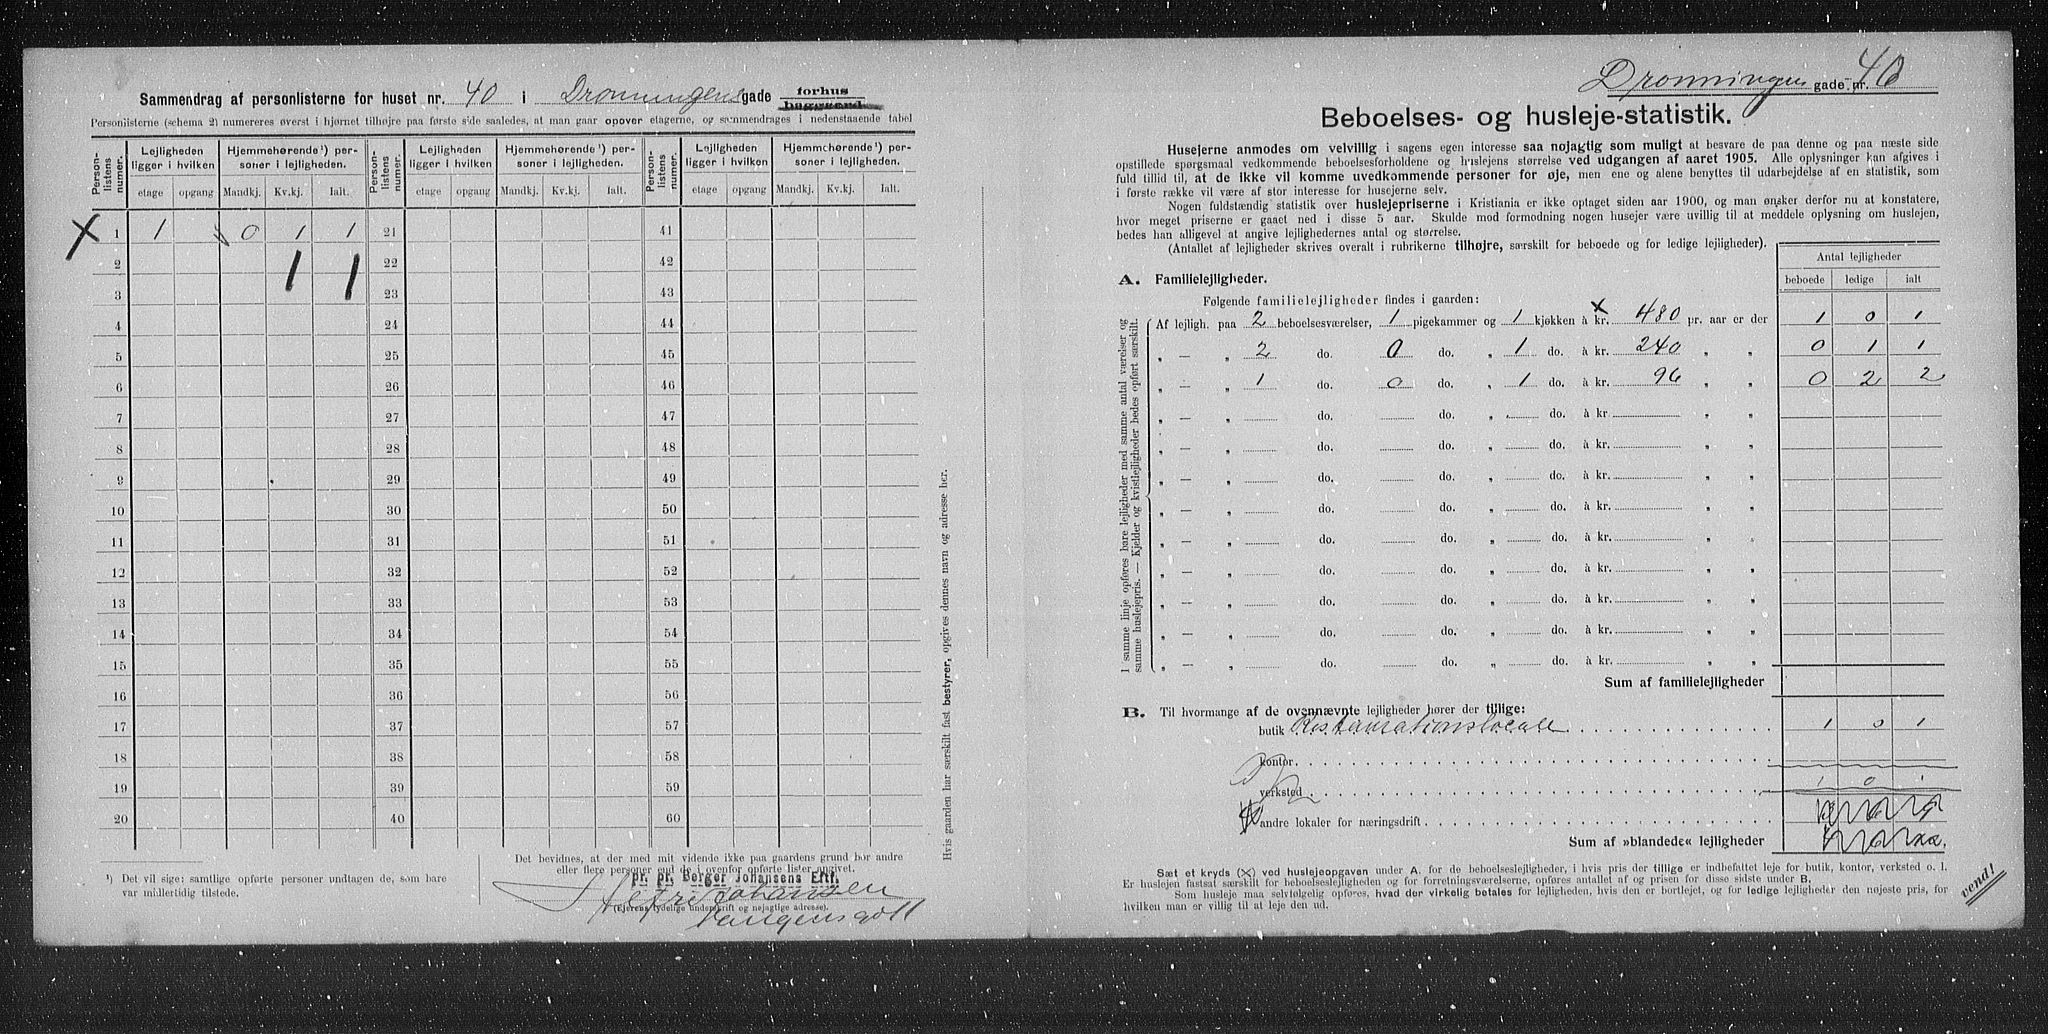 Sammendrag af personlisterne for huset nr. 40 i Dronningens gade forhus
baggaard
Personlisterne (schema 2) numereres øverst i hjørnet tilhøjre paa første side saaledes, at man gaar opover etagerne, og sammendrages i nedenstaaende tabel
Person-listens numer. Lejligheden ligger i hvilken Hjemmehørende¹) personer i lejligheden. Person-listens numer. Lejligheden ligger i hvilken Hjemmehørende¹) personer i lejligheden. Person-listens numer. Lejligheden ligger i hvilken Hjemmehørende¹) personer i lejligheden.
etage opgang Mandkj. Kv.kj. Ialt. etage opgang Mandkj. Kv.kj. Ialt. etage opgang Mandkj. Kv.kj. Ialt.
X 1 1 0 1 1 21 41
2 1 1 22 42
3 23 43
4 24 44
5 25 45
6 26 46
7 27 47
8 28 48
9 29 49
10 30 50
11 31 51
12 32 52
13 33 53
14 34 54
15 35 55
16 36 56
17 37 57
18 38 58
19 39 59
20 40 60
¹) Det vil sige: samtlige opførte personer undtagen de, som bare
var midlertidig tilstede.
Det bevidnes, at der med mit vidende ikke paa gaardens grund bor andre
eller flere personer end de i ovenfor opførte lister opgivet.
pr. pr. Berger Johansens Eftf.
Johansen
(Ejerens tydelige underskrift og nøjagtige adresse).
Hvis gaarden har særskilt fast bestyrer, opgives dennes navn og adresse her.
Dronningens gade nr. 40
Beboelses- og husleje-statistik.
Husejerne anmodes om velvillig i sagens egen interesse saa nøjagtig som muligt at besvare de paa denne og paa næste side
opstillede spørgsmaal vedkommende beboelsesforholdene og huslejens størrelse ved udgangen af aaret 1905. Alle oplysninger kan afgives i
fuld tillid til, at de ikke vil komme uvedkommende personer for øje, men ene og alene benyttes til udarbejdelse af en statistik, som
i første række vil være af stor interesse for husejerne selv.
Nogen fuldstændig statistik over huslejepriserne i Kristiania er ikke optaget siden aar 1900, og man ønsker derfor nu at konstatere,
hvor meget priserne er gaaet ned i disse 5 aar. Skulde mod formodning nogen husejer være uvillig til at meddele oplysning om huslejen,
bedes han alligevel at angive lejlighedernes antal og størrelse.
(Antallet af lejligheder skrives overalt i rubrikerne tilhøjre, særskilt for beboede og for ledige lejligheder).
Antal lejligheder
beboede ledige ialt
A. Familielejligheder.
Følgende familielejligheder findes i gaarden:
Af lejligh. paa 2 beboelsesværelser, 1 pigekammer og 1 kjøkken à X kr. 480 pr. aar er der 1 0 1
„ — „ 2 do. 0 do. „ 1 do. à kr. 240 „ „ 0 1 1
„ — „ 1 do. 0 do. „ 1 do. à kr. 96 „ „ 0 2 2
„ — „ do. do. „ do. à kr. „ „
„ — „ do. do. „ do. à kr. „ „
„ — „ do. do. „ do. à kr. „ „
„ — „ do. do. „ do. à kr. „ „
„ — „ do. do. „ do. à kr. „ „
„ — „ do. do. „ do. à kr. „ „
„ — „ do. do. „ do. à kr. „ „
„ — „ do. do. „ do. à kr. „ „
„ — „ do. do. „ do. à kr. „ „
I samme linje opføres bare lejligheder med samme antal værelser og
samme huslejepris. — Kjelder og kvistlejligheder bedes opført særskilt.
Sum af familielejligheder
B. Til hvormange af de ovennævnte lejligheder hører der tillige:
butik Restaurationslocale 1 0 1
kontor
verksted 1 0 1
andre lokaler for næringsdrift
Sum af »blandede« lejligheder
Sæt et kryds (X) ved huslejeopgaven under A. for de beboelseslejligheder, i hvis pris der tillige er indbefattet leje for butik, kontor, verksted o. l.
Er huslejen fastsat særskilt for beboelseslejligheden og for forretningsværelserne, opføres antallet af og prisen for disse sidste under B.
Som husleje maa selvfølgelig opføres, hvad der virkelig betales for lejligheden, hvis den er bortlejet, og for ledige lejligheder den nøjeste pris, for
hvilken man er villig til at leje den ud.
vend!